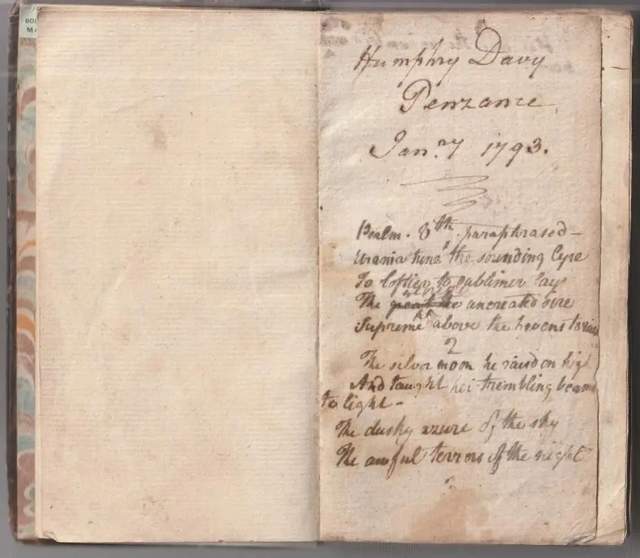 Humphry Davy
Penzance
Jan.ry 1793.
Psalm. 8th. paraphrased -
Urania tune the sounding Lyre
To loftier to sublimer lays
The uncreated sire
Supreme above the hevens to raise
2
The silver moon he raisd on high
And taught her trembling beams
to light -
The dusky azure of the sky
The awful terrors of the night